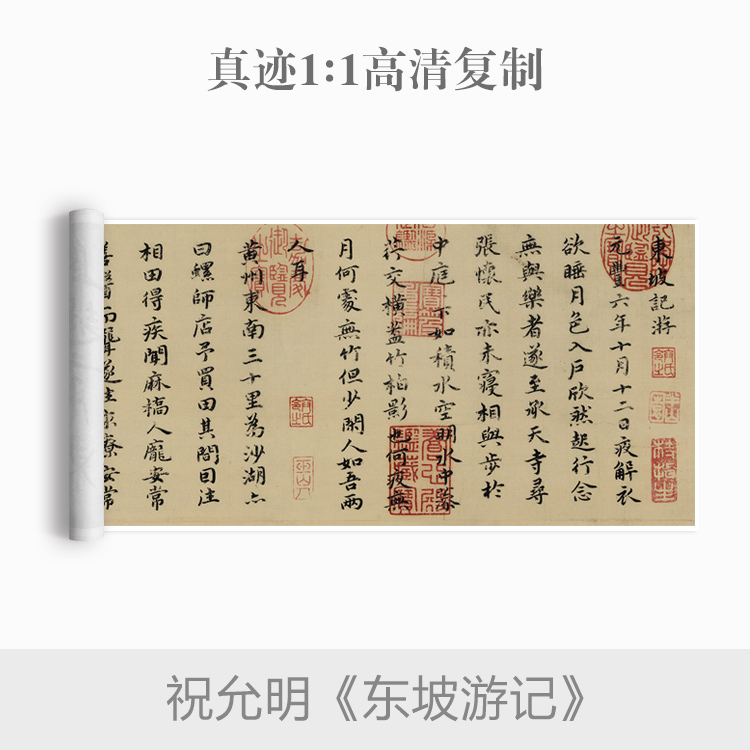 真迹1:1高清复制
東坡記游
元豐六年十月十二日夜解衣
欲睡月色入戶欣然起行念
無與樂者遂至承天寺尋
張懷民亦未寢相與步於
中庭下如積水空明水中藻
荇交橫蓋竹柏影也何夜無
月何處無竹但少閑人如吾兩
人耳
黃州東南三十里為沙湖亦
曰螺師店予買田其間因往
相田得疾聞麻橋人龐安常
善醫而聾遂往求療安常
祝允明《东坡游记》